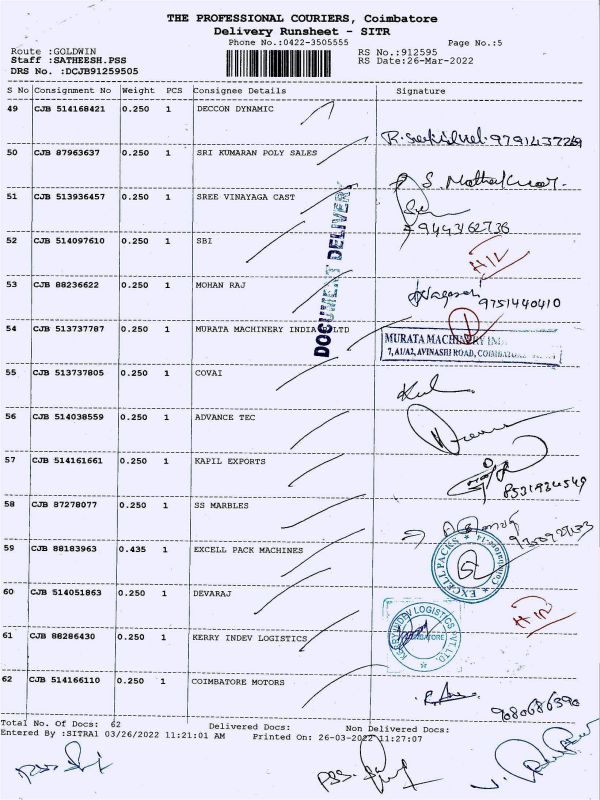 THE PROFESSIONAL COURIERS, Coimbatore
Delivery Runsheet - SITR
Phone No.:0422-3505555 Page No.:5
Route :GOLDWIN RS No.:912595
Staff :SATHEESH.PSS RS Date:26-Mar-2022
DRS No. :DCJB91259505
S No Consignment No Weight PCS Consignee Details Signature
49 CJB 514168421 0.250 1 DECCON DYNAMIC
9791437269
50 CJB 87963637 0.250 1 SRI KUMARAN POLY SALES
51 CJB 513936457 0.250 1 SREE VINAYAGA CAST
9443162736
52 CJB 514097610 0.250 1 SBI
53 CJB 88236622 0.250 1 MOHAN RAJ
9751440410
54 CJB 513737787 0.250 1 MURATA MACHINERY INDIA LTD
DOCUMENT DELIVERY
MURATA MACHINERY
7, A1/A2, AVINASHI ROAD,
55 CJB 513737805 0.250 1 COVAI
56 CJB 514038559 0.250 1 ADVANCE TEC
57 CJB 514161661 0.250 1 KAPIL EXPORTS
8531934549
58 CJB 87278077 0.250 1 SS MARBLES
59 CJB 88183963 0.435 1 EXCELL PACK MACHINES
EXCELL PACKS
Coimbatore-14
60 CJB 514051863 0.250 1 DEVARAJ
61 CJB 88286430 0.250 1 KERRY INDEV LOGISTICS
KERRY INDEV LOGISTICS PVT LTD.
62 CJB 514166110 0.250 1 COIMBATORE MOTORS
9080686390
Total No. Of Docs: 62 Delivered Docs: Non Delivered Docs:
Entered By :SITRA1 03/26/2022 11:21:01 AM Printed On: 26-03-2022 11:27:07